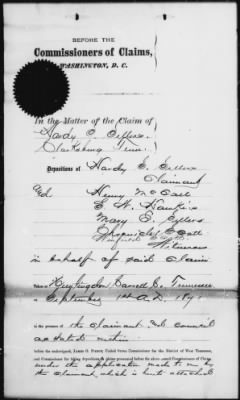 BEFORE THE
Commissioners of Claims,
WASHINGTON, D. C.
In the Matter of the Claim of
Hardy E. Sellers
Clarksburg Tenn.
Depositions of Hardy E. Sellers
Claimant
Henry McCall
E. W. Hawkins
Mary E. Sellers
Scott
Witnesses
in behalf of said claim
Taken at Huntingdon Carroll C. Tennessee
September 1st A.D. 187
in the presence of the claimant and council
as stated within
before the undersigned, United States Commissioner for the District of West Tennessee,
and Commissioner for taking depositions in claims presented before the above named Commissioners of Claims
under the application made to me by
the claimant, which is hereto attached